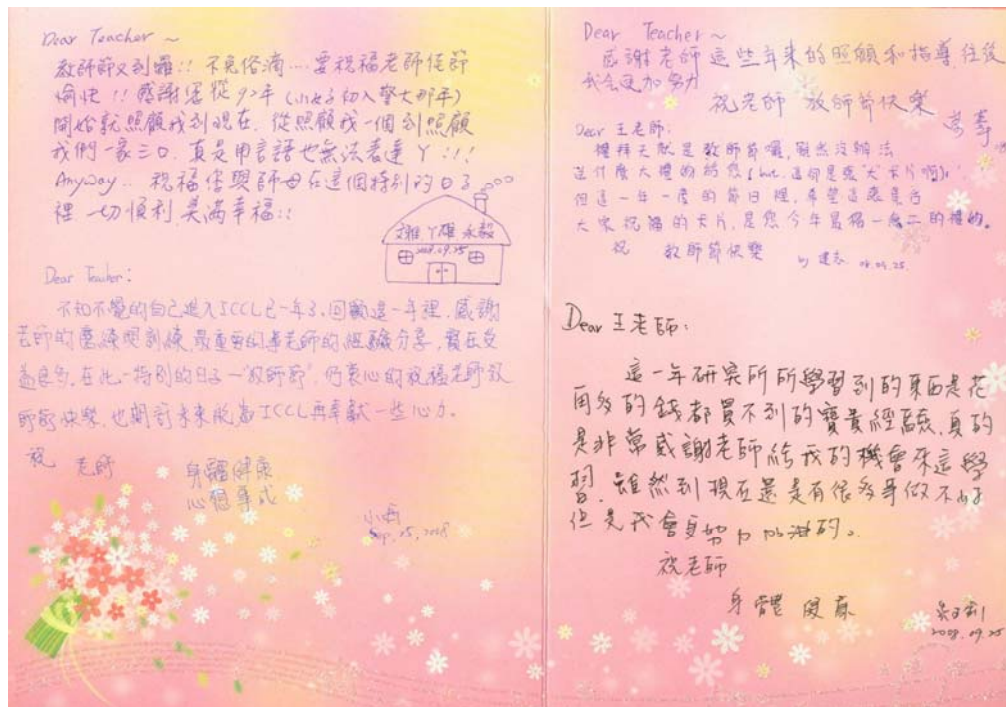 Dear Teacher ~
教師節又到囉!! 不免俗滴... 要祝福老師佳節
愉快!! 感謝您從92年(小女子初入警大那年)
開始就照顧我到現在. 從照顧我一個到照顧
我們一家三口. 真是用言語也無法表達丫!!!
Anyway.. 祝福您與師母在這個特別的日子
裡 一切順利 美滿幸福!!
文雅 丫雄 永毅
2008.09.25
Dear Teacher:
不知不覺的自己進入ICCL已一年了, 回顧這一年裡, 感謝
老師的磨練與訓練, 最重要的事老師的經驗分享, 實在受
益良多, 在此一特別的日子—"教師節", 仍衷心的祝福老師教
師節快樂, 也期許未來能為ICCL再奉獻一些心力。
祝 老師
身體健康
心想事成
Sep, 25, 2008
Dear Teacher ~
感謝老師這些年來的照顧和指導, 往後
我會更加努力
祝老師 教師節快樂
Dear 王老師:
禮拜天就是教師節囉, 雖然沒辦法
送什麼大禮的給您(but 這卻是張"大"卡片啊):'
但這一年一度的節日裡, 希望這張集合
大家祝福的卡片, 是您今年最獨一無二的禮物。
祝 教師節快樂 by 建志 08.09.25.
Dear 王老師:
這一年研究所所學習到的東西是花
再多的錢都買不到的寶貴經驗, 真的
是非常感謝老師給我的機會來這學
習. 雖然到現在還是有很多事做不好
但是我會更努力加油的。
祝老師
身體健康
2008.09.25